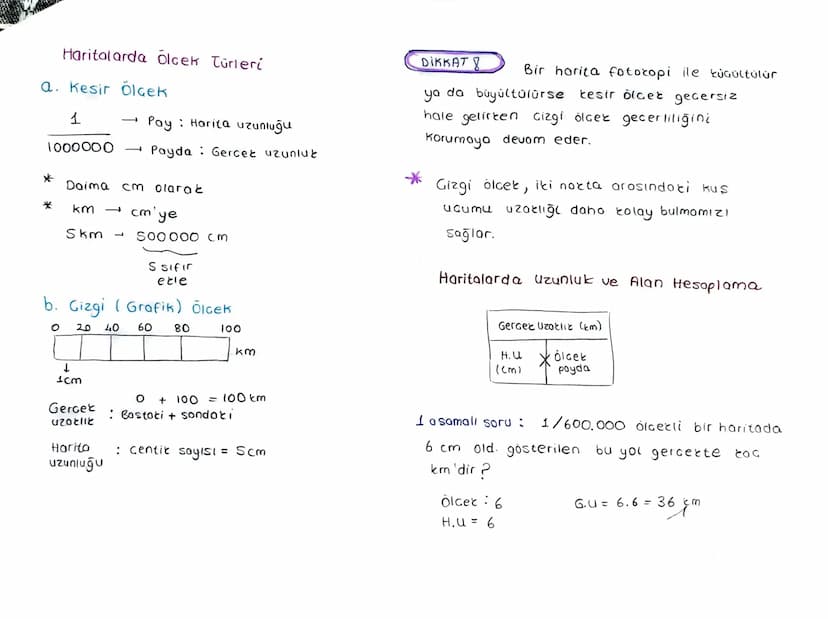 Haritalarda Ölçek Türleri
a. Kesir Ölçek
1 → Pay : Harita uzunluğu
1000000 → Payda : Gerçek uzunluk
* Daima cm olarak
* km → cm'ye
5km → 500000 cm
5 sıfır
ekle
b. Çizgi (Grafik) Ölçek
0 20 40 60 80 100
km
↓
1cm
0 + 100 = 100 km
Gerçek
uzaklık : Baştaki + sondaki
Harita
uzunluğu : Çentik sayısı = 5cm
DİKKAT!
Bir harita fotokopi ile küçültülür
ya da büyütülürse kesir ölçek geçersiz
hale gelirken çizgi ölçek geçerliliğini
korumaya devam eder.
* Çizgi ölçek, iki nokta arasındaki kuş
uçumu uzaklığı daha kolay bulmamızı
sağlar.
Haritalarda Uzunluk ve Alan Hesaplama
Gerçek Uzaklık (km)
H.U
(cm) X Ölçek
payda
1 aşamalı soru : 1/600.000 ölçekli bir haritada
6 cm old. gösterilen bu yol gerçekte kaç
km'dir?
Ölçek : 6
H.U = 6
G.U = 6.6 = 36 km